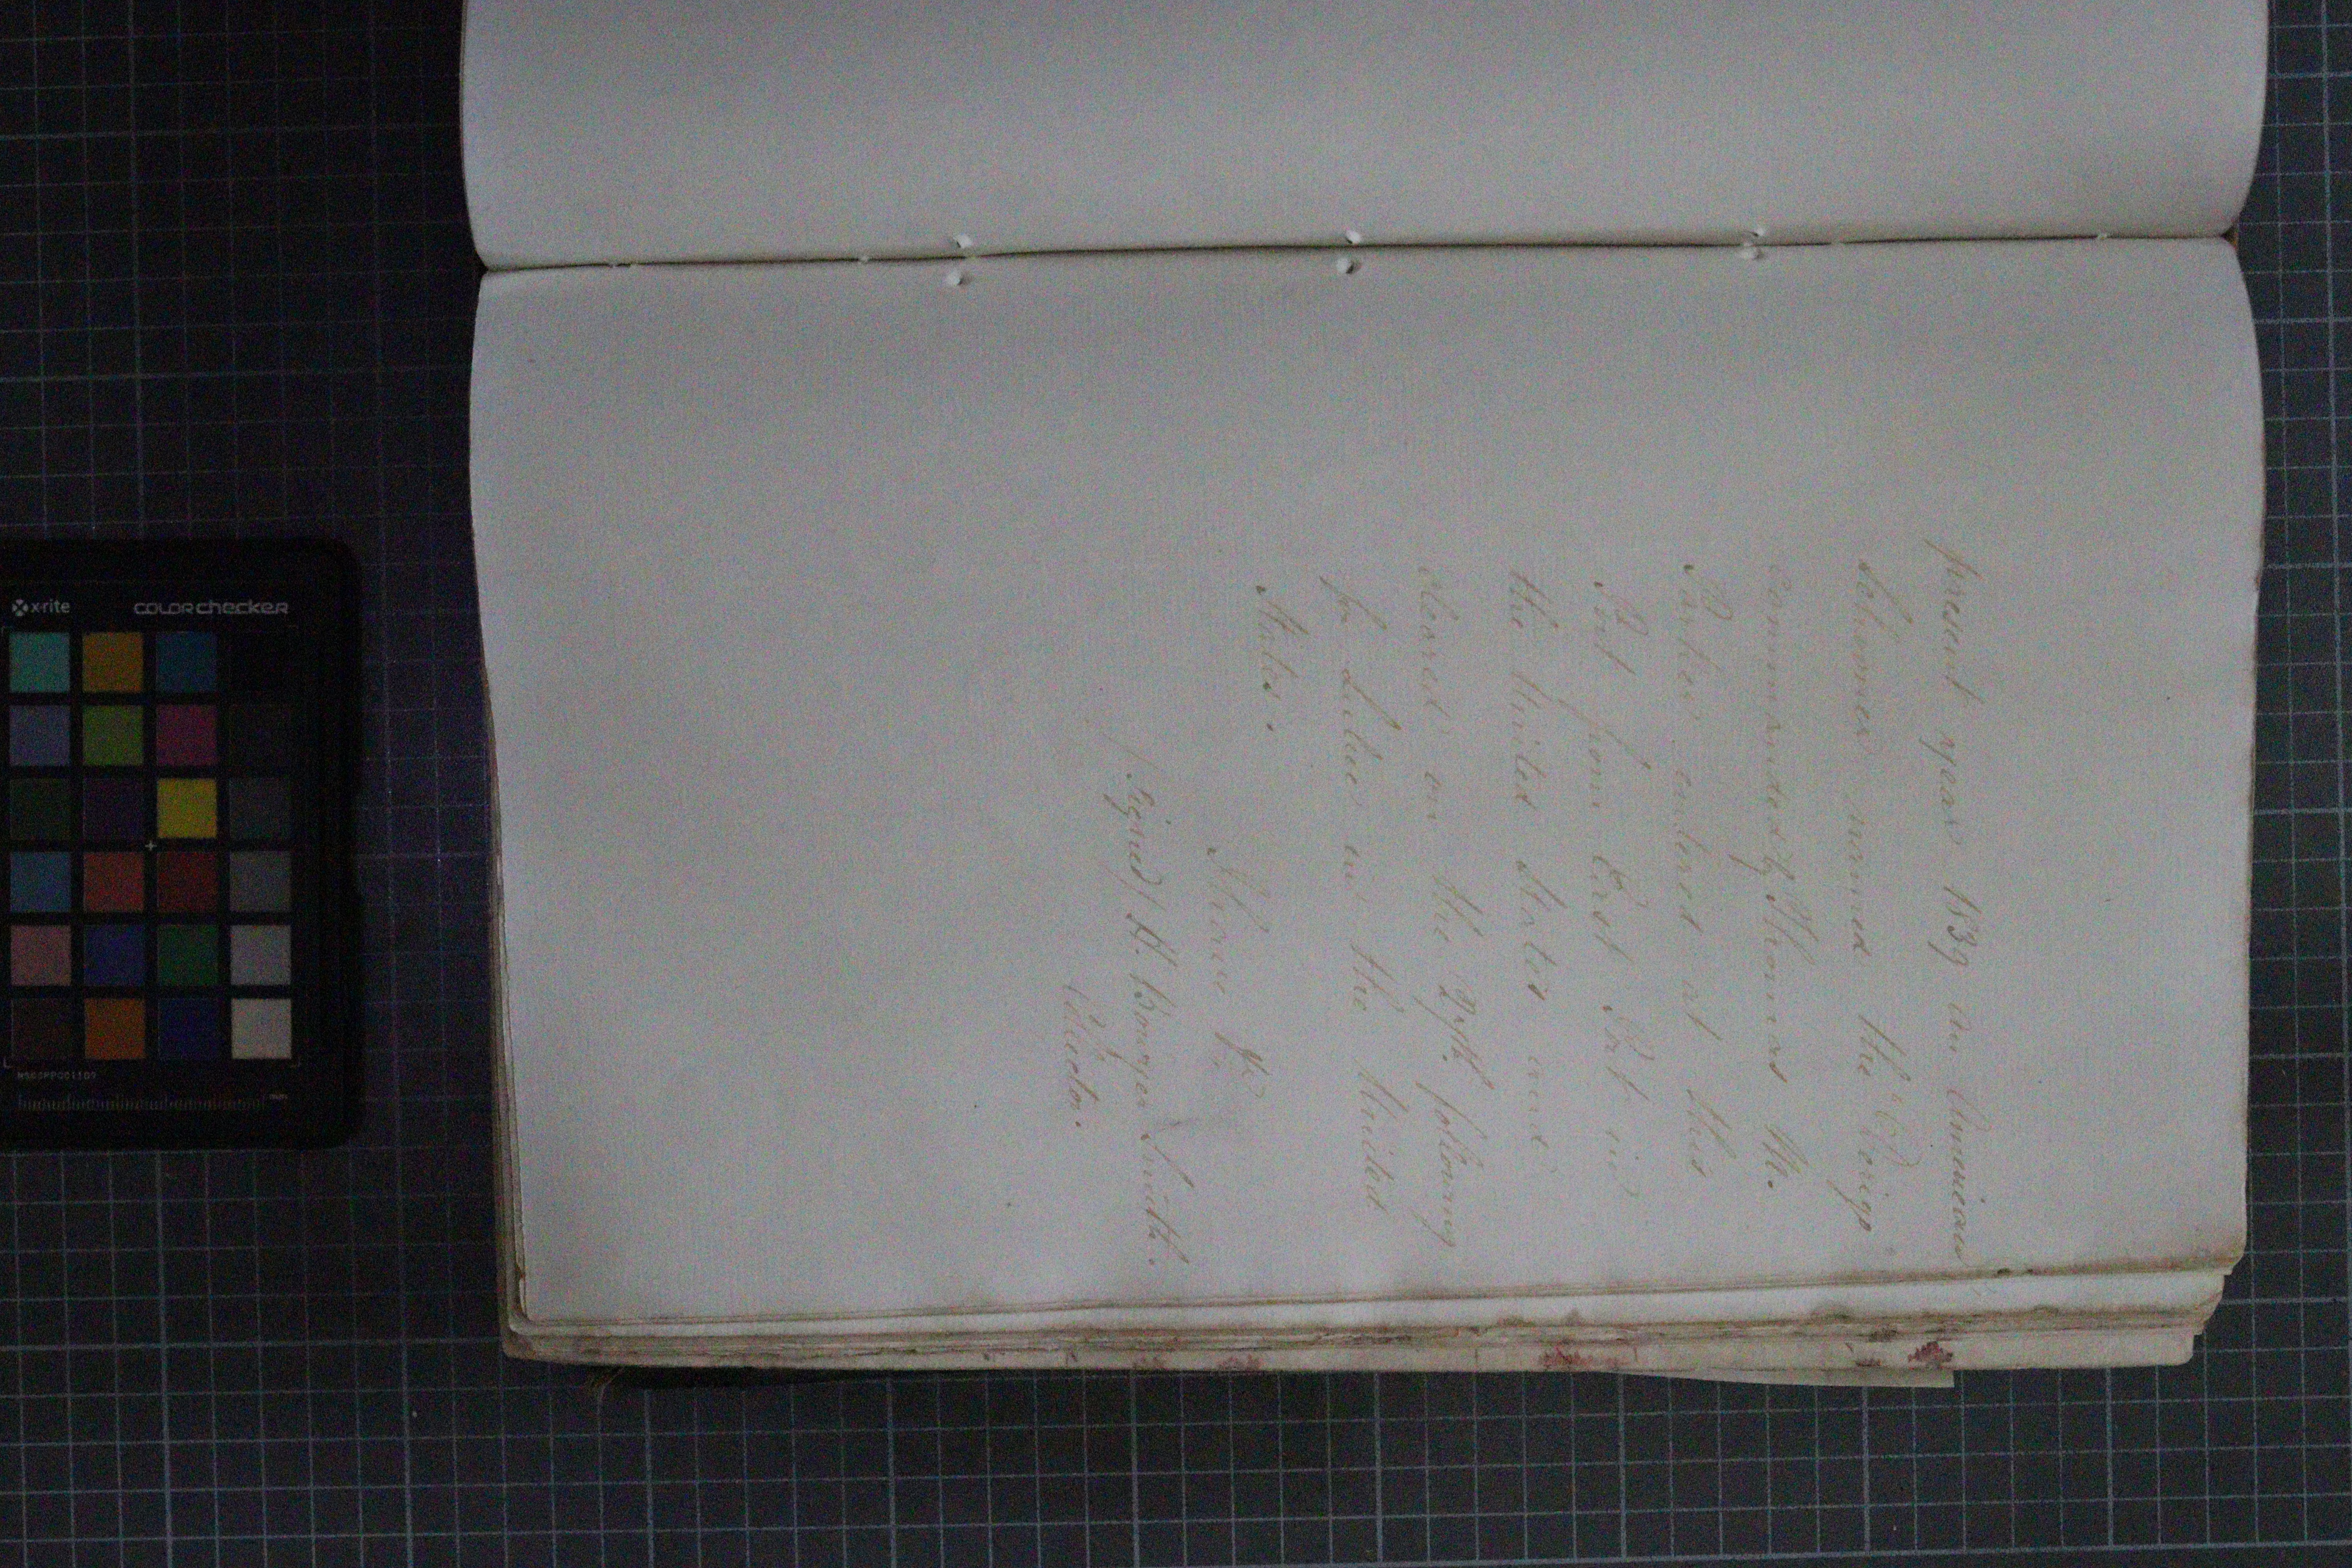 present year 1839 an American
Schooner named the "Oerigo
Commanded by Thomas M.
Parker entered at this
Port from East Port in
the United States and
cleared on the 27th following
for Lubec in the United
States.
I have &c
(signed) H. Bowyer Smith.
Collector.
x-rite
colorchecker